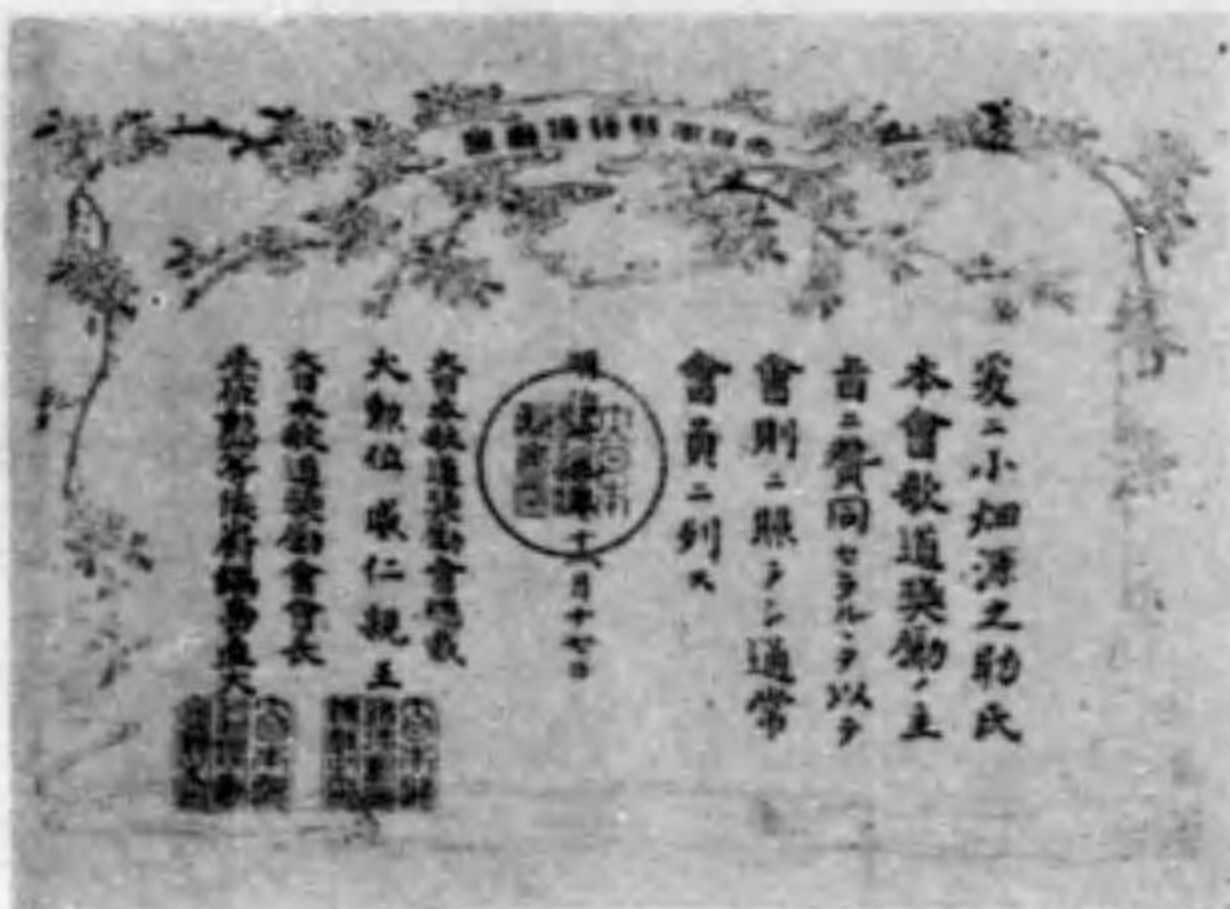 大日本歌道奨勵會
爰ニ小畑源之助氏
本會歌道奬勵ノ主
旨ニ賛同セラルヽヲ以テ
會則ニ照ラシ通常
會員ニ列ス
明治 年十 月十七日
大日本歌道奬勵會總裁
大勲位威仁親王
大日本歌道奬勵會會長